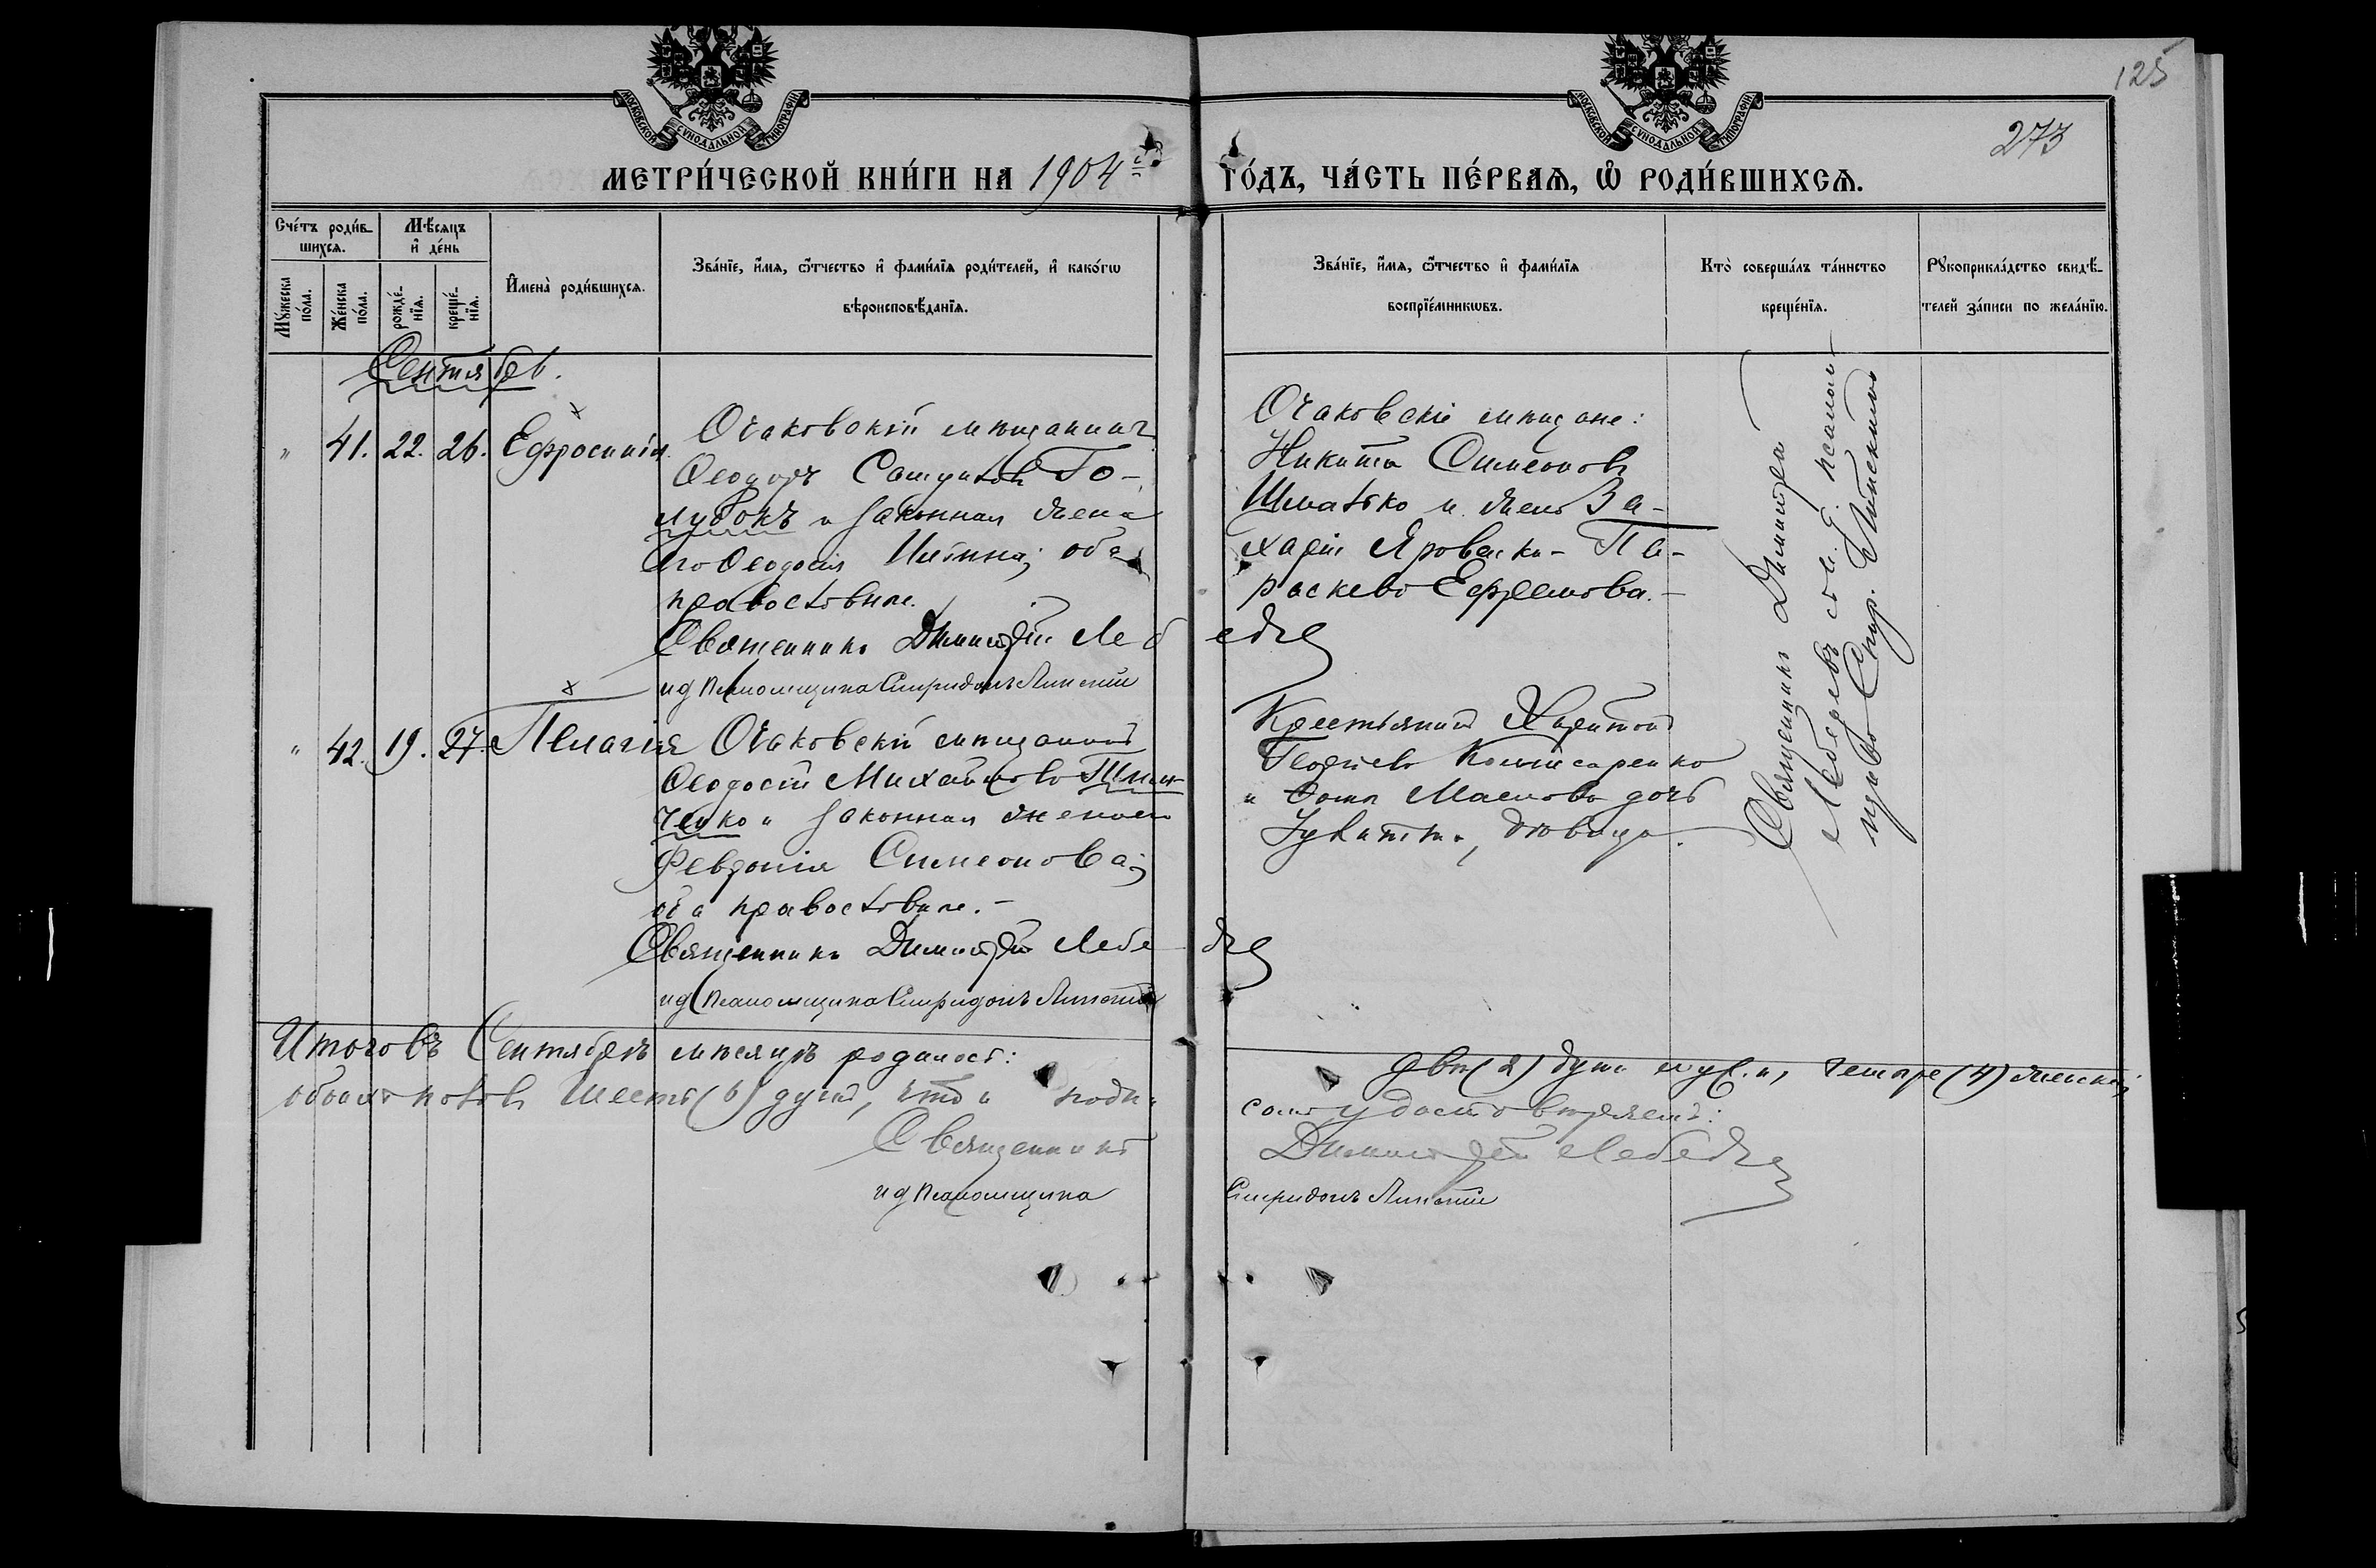 125
273
МОСКОВСКОЙ СѴНОДАЛЬНОЙ ТИПОГРАФІИ
МОСКОВСКОЙ СѴНОДАЛЬНОЙ ТИПОГРАФІИ
МЕТРИ́ЧЕСКОЙ КНИ́ГИ НА 1904 ГО́ДЪ, ЧА́СТЬ ПЕ́РВАѦ, Ѽ РОДИ́ВШИХСѦ.
Сче́тъ роди́вшихсѧ.
Мꙋ́жеска по́ла.
Же́нска по́ла.
Мѣ́сѧцъ и҆ де́нь
рожде́нїѧ.
креще́нїѧ.
И҆мена̀ роди́вшихсѧ.
Зва́нїе, и҆́мѧ, ѻ҆́тчество и҆ фами́лїѧ роди́телей, и҆ како́гѡ
вѣроисповѣ́данїѧ.
Зва́нїе, и҆́мѧ, ѻ҆́тчество и҆ фами́лїѧ
воспрїе́мникѡвъ.
Кто̀ соверша́лъ та́инство
креще́нїѧ.
Рꙋкоприкла́дство свидѣ́телей за́писи по жела́нїю.
Сентябрь.
" 41. 22. 26. Ефросинія
Очаковскій мѣщанинъ
Ѳеодоръ Го-
лубокъ и законная жена
его Ѳеодосія обa
православные.
Священникъ Димитрій Лебедевъ
ид псаломщика Спиридонъ Липскій
Очаковскіе мѣщане:
Никита Симеоновъ
Шматько и жена За-
харіи Яровенка - Па-
раскева Ефремова. -
Священникъ Димитрій
Лебедевъ съ и. д. псалом-
щика Спир. Липскимъ
" 42. 19. 27. Пелагія
Очаковскій мѣщанинъ
Ѳеодосій Михайловъ
ченко и законная жена его
Февронія Симеонова;
оба православные. -
Священникъ Димитрій Лебедевъ
ид псаломщика Спиридонъ Липскій
Крестьянинъ Харитонъ
Георгіевъ Комисаренко
и дочь
дѣвица.
Итого въ Сентябрѣ мѣсяцѣ родилось: двѣ (2) души муж. и, четыре (4) женск.;
обоихъ половъ шесть (6) душъ, что и подписомъ удостовѣряемъ:
Священникъ Димитрій Лебедевъ
ид псаломщика Спиридонъ Липскій